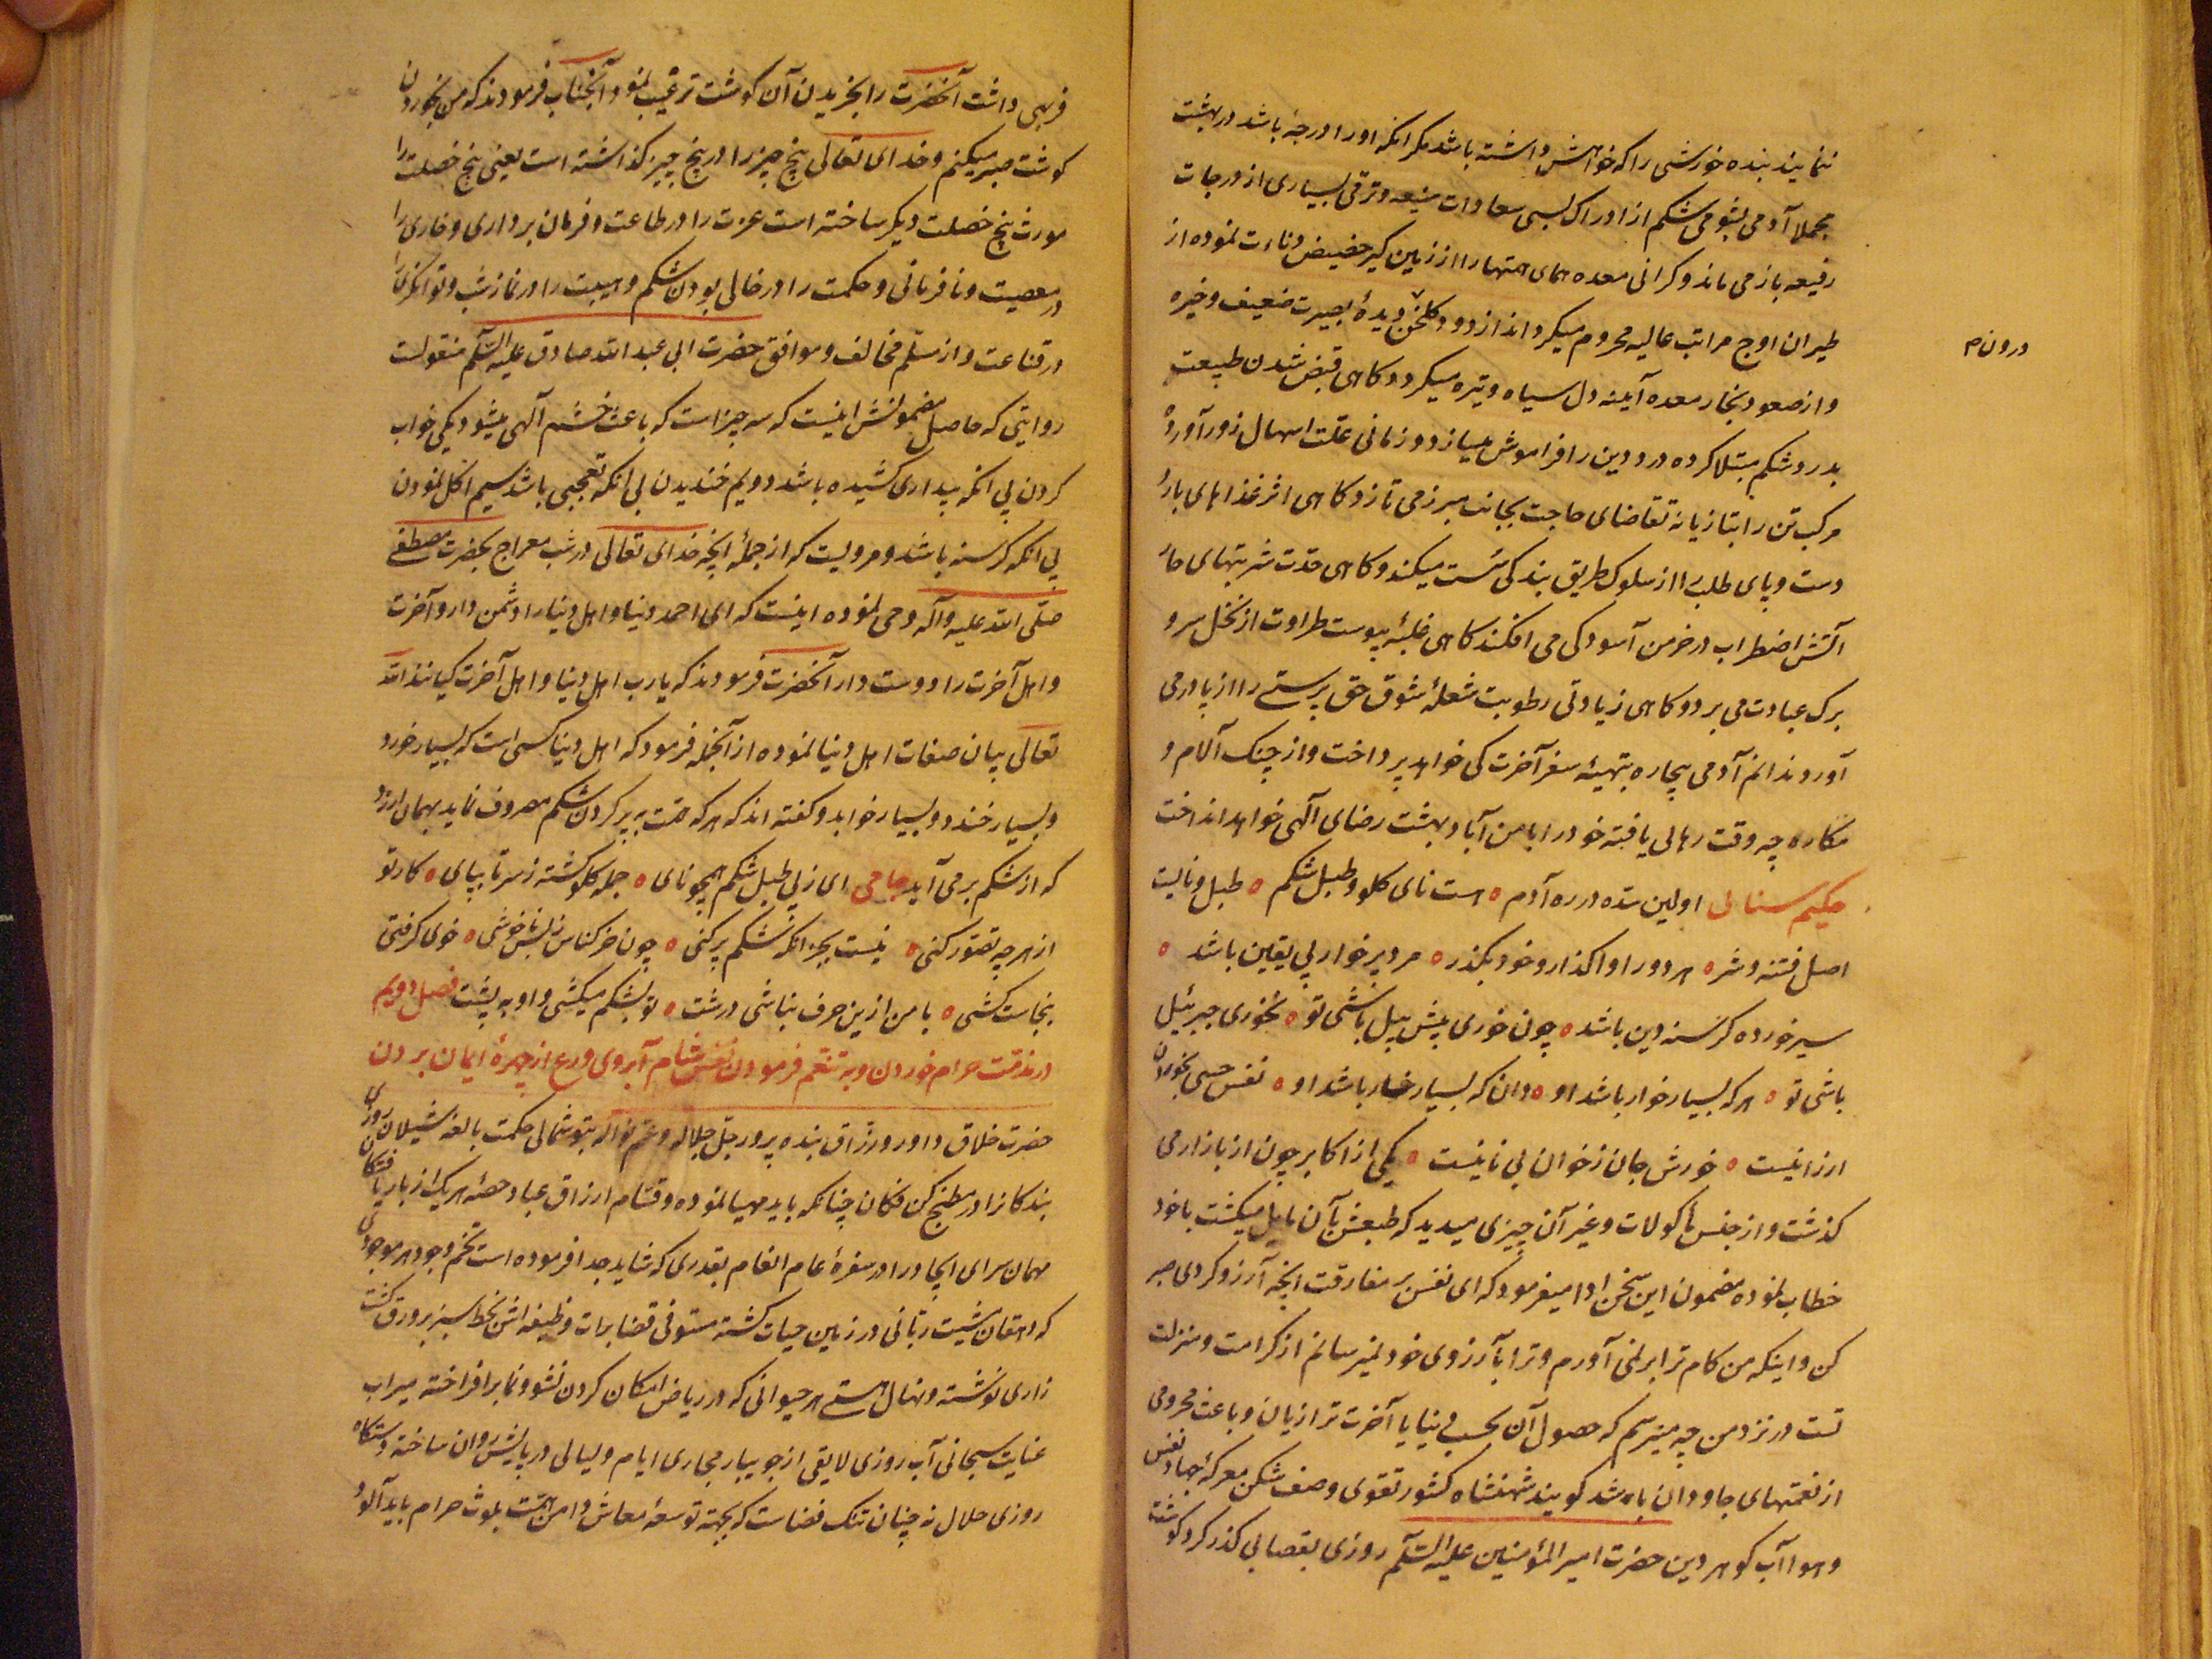 ننمایند بنده خورشی را که خواهش داشته باشد مکر انکه او را درجۀ باشد در بهشت
مجملا آدمی بشومی شکم از ادراک بسی سعادات منیعه و ترقی بسیاری از درجات
رفیعه باز می ماند و کرانی معده همای همتها را از زمین کیر حضیض دناءت نموده از
طیران اوج مراتب عالیه محروم میکرداند از دود کلخن دیدۀ بصیرت ضعیف و خیره
درون م
و از صعود بخار معده آیینه دل سیاه و تیره میکردد کاهی قبض شدن طبیعت
بدرد شکم مبتلا کرده درد دین را فراموش میسازد و زمانی علت اسهال زور آورد
مرکب تن را بتازیانه تقاضای حاجت بجانب مبرز می تازد کاهی اثر غذاهای بارد
دست و پای طلب را از سلوک طریق بندکی سست میکند و کاهی حدت شربتهای حار
آتش اضطراب در خرمن آسودکی می افکند کاهی غلبۀ یبوست طراوت از نخل سر و
برک عبادت می برد و کاهی زیادتی رطوبت شعلۀ شوق حق پرستے را از پا درمی
آورد ندانم آدمی بیچاره بتهیئه سفر آخرت کی خواهد پرداخت و از چنک آلام و
مکاره چه وقت رهائی یافته خود را بامن آباد بهشت رضای آلهی خواهد انداخت
حکیم سنائی اولین سده در ره آدم ه هست نای کلو و طبل شکم ه طبل و نایست
اصل فتنه و شر ه هر دو را واکذار و خود بکذر ه مرد پر خوار بی یقین باشد ه
سیر خورده کرسنه دین باشد ه چون خوری بیش پیل باشی تو ه نخوری جبرئیل
باشی تو ه هر که بسیار خوار باشد او ه دان که بسیار خار باشد او ه نفس حسی بخوردن
ارزانیست ه خورش جان ز خوان بی نانیست ه یکی از اکابر چون از بازار می
کذشت و از جنس ماکولات و غیر آن چیزی میدید که طبعش بآن مایل میکشت با خود
خطاب نموده مضمون این سخن ادا میفرمود که ای نفس بر مفارقت انچه آرزو کردی صبر
کن و اینکه من کام ترا بر نمی آورم و ترا بآرزوی خود نمیرسانم از کرامت و منزلت
تست در نزد من چه میترسم که حصول آن بحسب دنیا یا آخرت ترا زیان و باعث محرومی
از نعمتهای جاودان باشد کویند شهنشاه کشور تقوی و صف شکن معرکۀ جهاد نفس
و هوا آب کوهر دین حضرت امیر المؤمنین علیه السّلم روزی بقصابی کذر کرد کوشت
فربهی داشت آنحضرت را بخریدن آن کوشت ترغیب نمود آنجناب فرمودند که من بخوردن
کوشت صبر میکنم و خدای تعالی پنج چیز را در پنج چیز کذاشته است یعنی پنج خصلت را
مورث پنج خصلت دیکر ساخته است عزت را در طاعت و فرمان برداری و خاری را
در معصیت و نافرمانی و حکمت را در خالی بودن شکم و هیبت را در نماز شب و توانکری را
در قناعت و از مسلم مخالف و موافق حضرت ابی عبد الله صادق علیه السّلم منقولست
روایتی که حاصل مضمونش اینست که سه چیز است که باعث خشم آلهی میشود یکی خواب
کردن بی انکه بیداری کشیده باشد دویم خندیدن بی انکه تعجبی باشد سیم اکل نمودن
بی انکه کرسنه باشد و مرویست که از جملۀ انچه خدای تعالی در شب معراج بحضرت مصطفے
صلّی الله علیه و آله وحی نموده اینست که ای احمد دنیا و اهل دنیا را دشمن دار و آخرت
و اهل آخرت را دوست دار آنحضرت فرمودند که یا رب اهل دنیا و اهل آخرت کیانند الله
تعالی بیان صفات اهل دنیا نموده از آنجمله فرمود که اهل دنیا کسی است که بسیار خورد
و بسیار خندد و بسیار خوابد و کفته اند که هر که همت به پر کردن شکم مصروف نماید بهمان ارزد
که از شکم بر می آید جامی ای ز پی طبل شکم همچو نای ه جمله کلو کشته ز سر تا بپای ه کار تو
از هر چه تصور کنی ه نیست بجز انکه شکم پر کنی ه چون خر کناس ز بس ناخوشی ه خوی کرفتی
بنجاست کشی ه با من ازین حرف نباشی درشت ه تو بشکم میکشی و او به پشت فصل دویم
در مذمت حرام خوردن و به تنعّم فرمودن نفس شام آبروی ورع از چهرۀ ایمان بردن
حضرت خلاق داور و رزّاق بنده پرور جلّ جلاله و عمّ نواله بتوشمالی حکمت بالغه شیلان روزی
بندکان را در مطبخ کن فکان چنانکه باید مهیا نموده و قسّام ارزاق عباد حصۀ هر یک از باریافتکان
مهمان سرای ایجاد را در سفرۀ عام انعام بقدری که شاید جدا فرموده است تخم وجود هر موجودی
که دهقان مشیت ربّانی در زمین حیات کشته مستوفی قضا برات وظیفه اش بخط سبز بر ورق کشت
زاری نوشته و نهال هستے هر حیوانی که در ریاض امکان کردن نشو و نما بر افراخته میراب
عنایت سبحانی آب روزی لایقی از جویبار مجاری ایام و لیالی در پایش روان ساخته دستکاه
روزی حلال نه چنان تنک فضاست که بجهة توسعۀ معاش دامن همّت بلوث حرام باید آلود